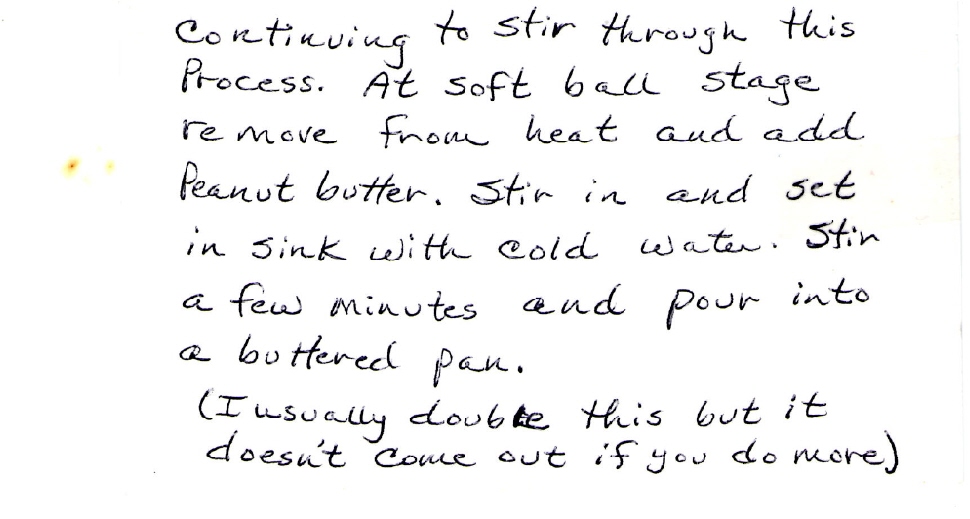 Continuing to stir through this
Process. At soft ball stage
remove from heat and add
Peanut butter. Stir in and set
in sink with cold water. Stir
a few minutes and pour into
a buttered pan.
(I ususually double this but it
doesn't come out if you do more)